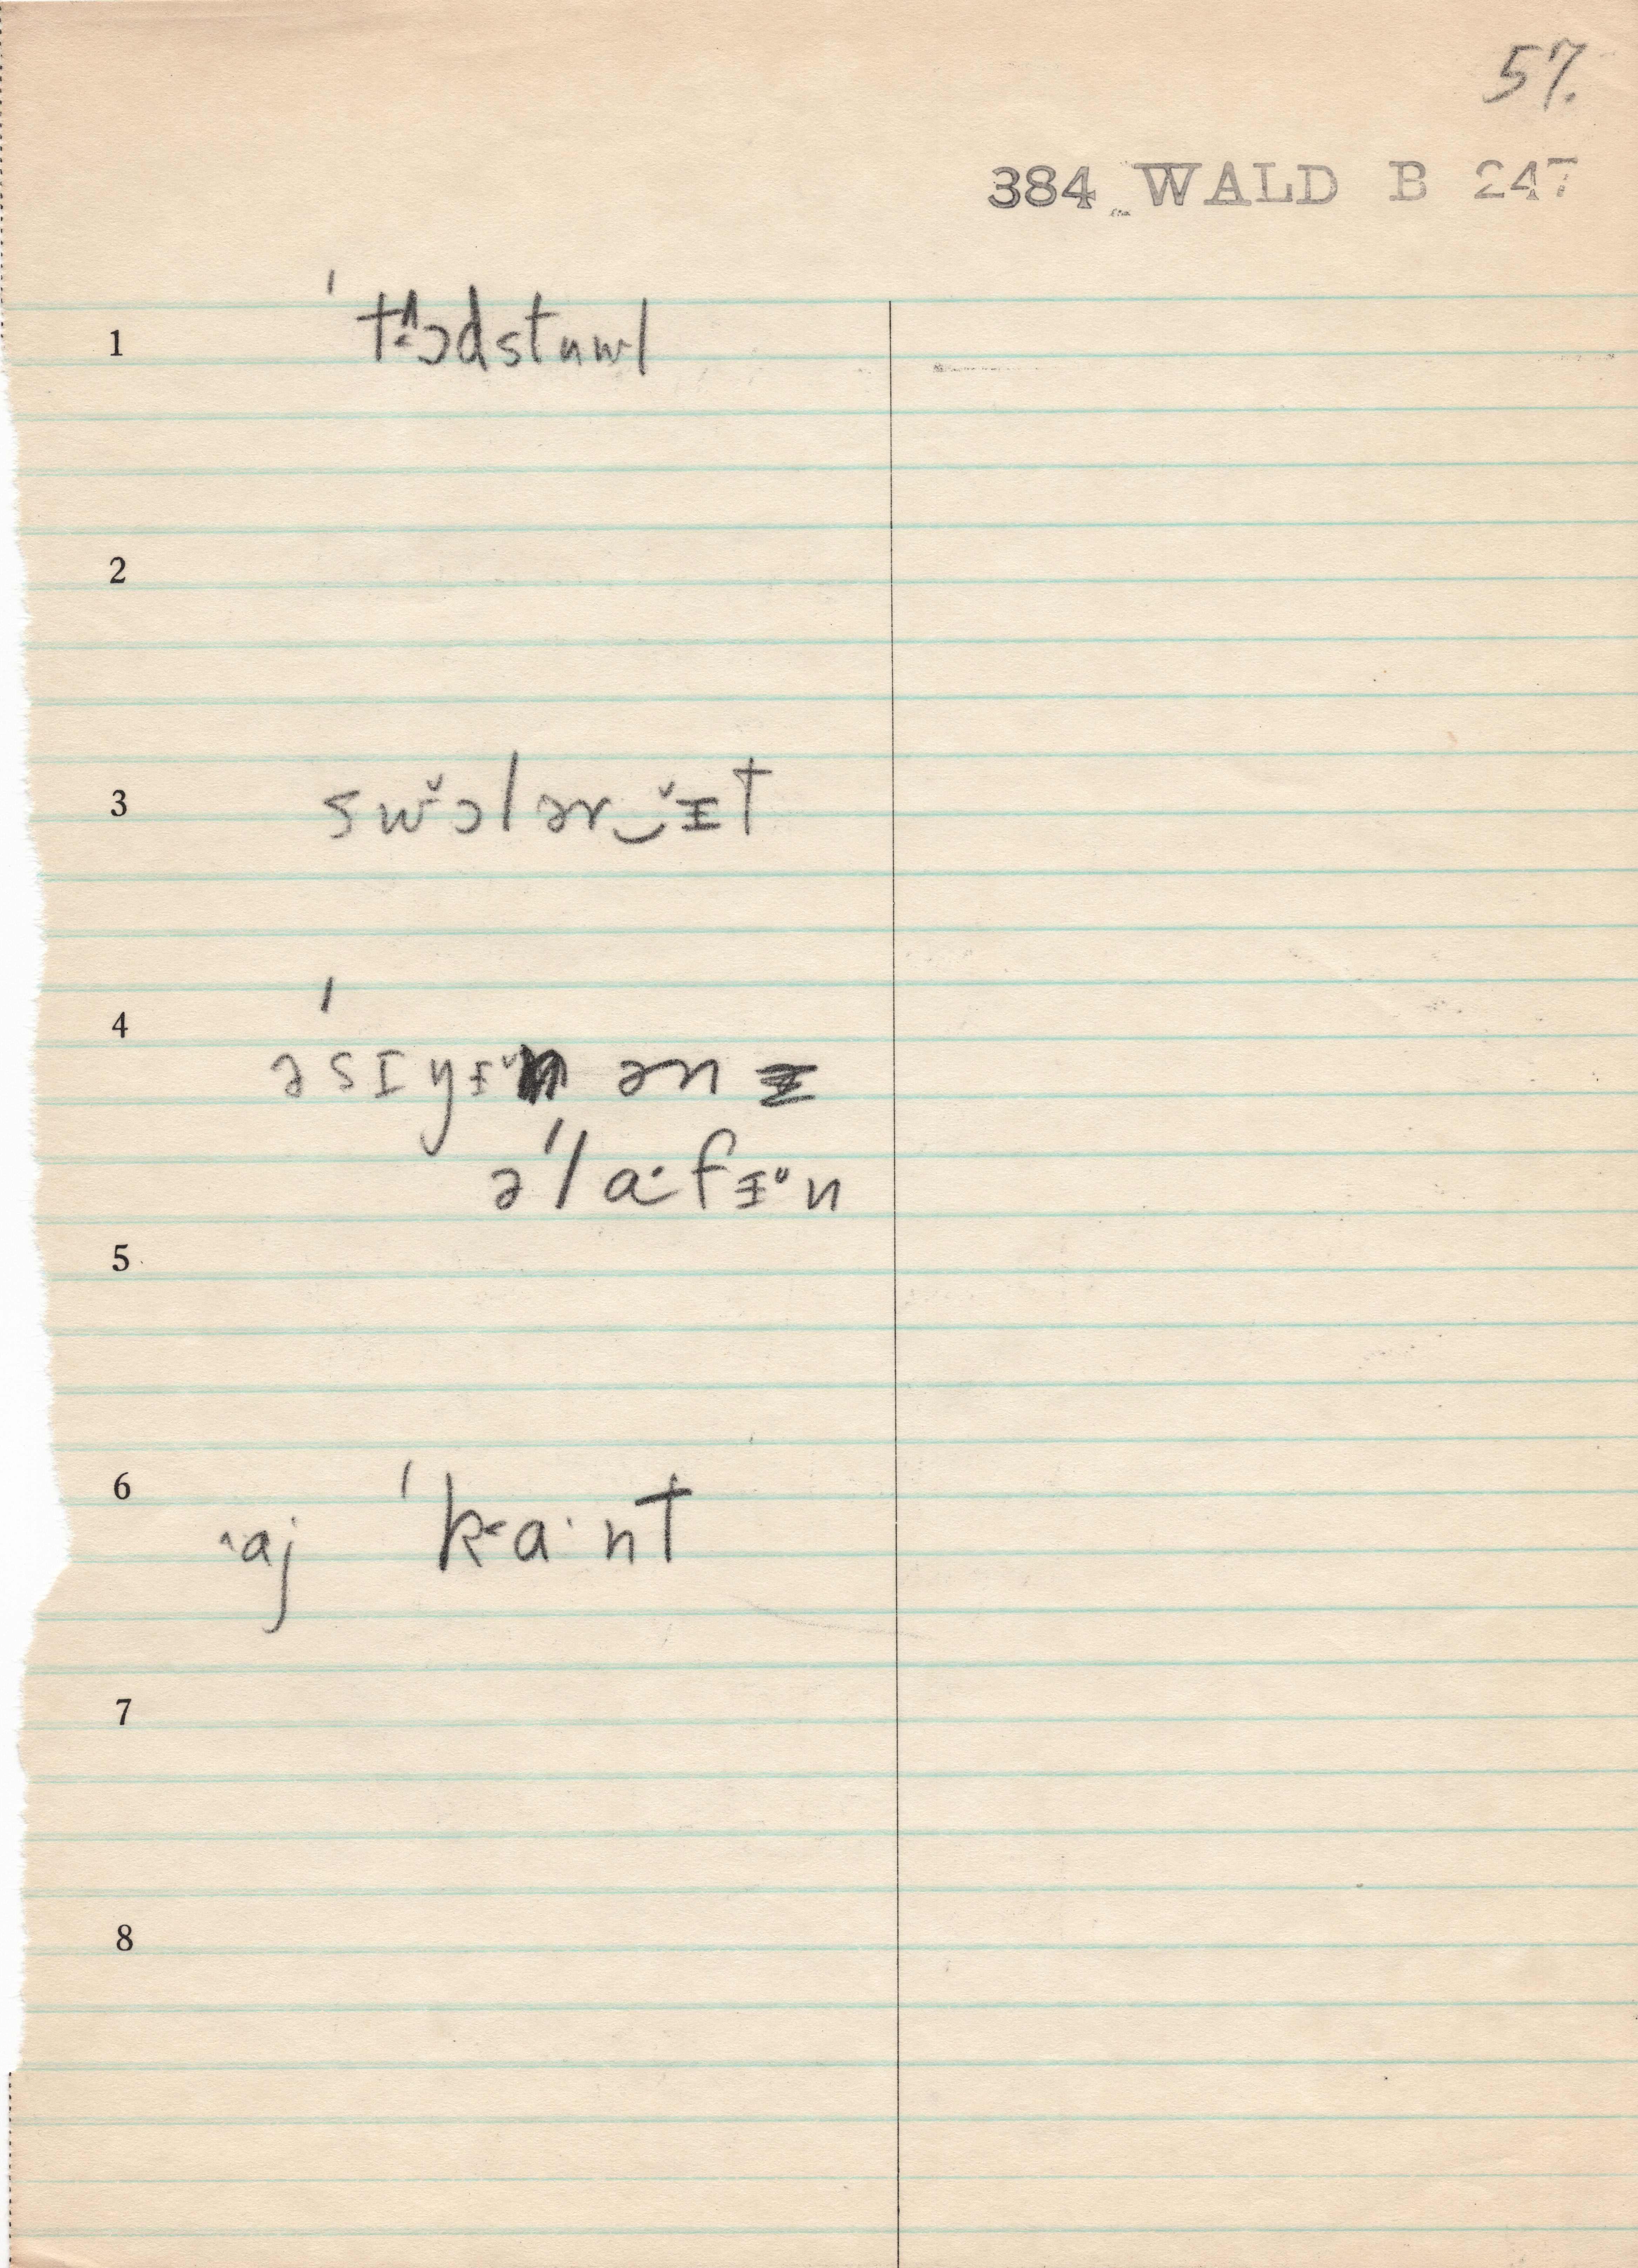 57.
384 WALD B 247
1 ˈt˂ʌɔdstuwl
2
3 swɔ̆lər‿ɪ̵̆t
4 ˈəsɪyɪ̵̆n ən
əˈla·fɪ̵ᵘn
5
6 ˄aj ˈk˂a·nt
7
8